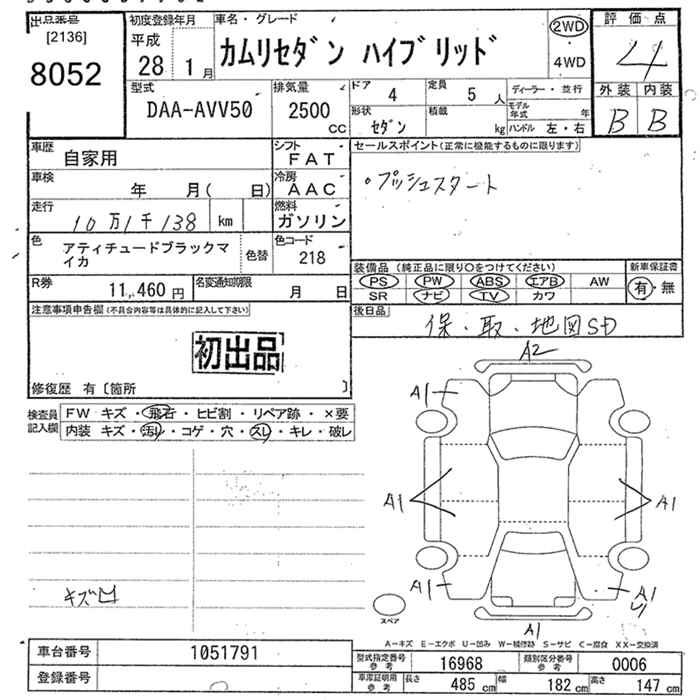 出品番号
[2136]
8052
初度登録年月
平成
28 1月
車名・グレード
カムリセダン ハイブリッド
2WD
・
4WD
評価点
4
外装 内装
B B
型式
DAA-AVV50
排気量
2500
CC
ドア
4
定員
5 人
形状
セダン
積載
kg
ディーラー・並行
モデル年式 年
ハンドル 左・右
車歴
自家用
シフト
FAT
車検
年 月( 日)
冷房
AAC
走行
10万1千138 km
燃料
ガソリン
色
アティチュードブラックマイカ
色替
色コード
218
R券
11,460 円
名変通知期限
月 日
セールスポイント(正常に機能するものに限ります)
・プッシュスタート
装備品(純正品に限り○をつけてください)
PS PW ABS エアB AW
SR ナビ TV カワ
新車保証書
有・無
後日品
保・取・地図SD
注意事項申告欄(不具合内容等は具体的に記入して下さい)
初出品
修復歴 有〔箇所 〕
検査員記入欄
FW キズ・飛石・ヒビ割・リペア跡・×要
内装 キズ・汚レ・コゲ・穴・スレ・キレ・破レ
キズ凹
A2
A1
A1
A1
A1
A1
A1
スペア
A-キズ E-エクボ U-凹み W-補修跡 S-サビ C-腐食 XX-交換済
車台番号
1051791
登録番号
型式指定番号
参考
16968
類別区分番号
参考
0006
車庫証明用
参考
長さ 485 cm 幅 182 cm 高さ 147 cm